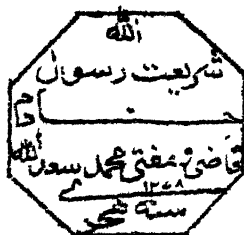 الله
شریعت رسول
خادم
قاضی و مفتی محمد سعد الله
۱۲۷۸
سنه هجری